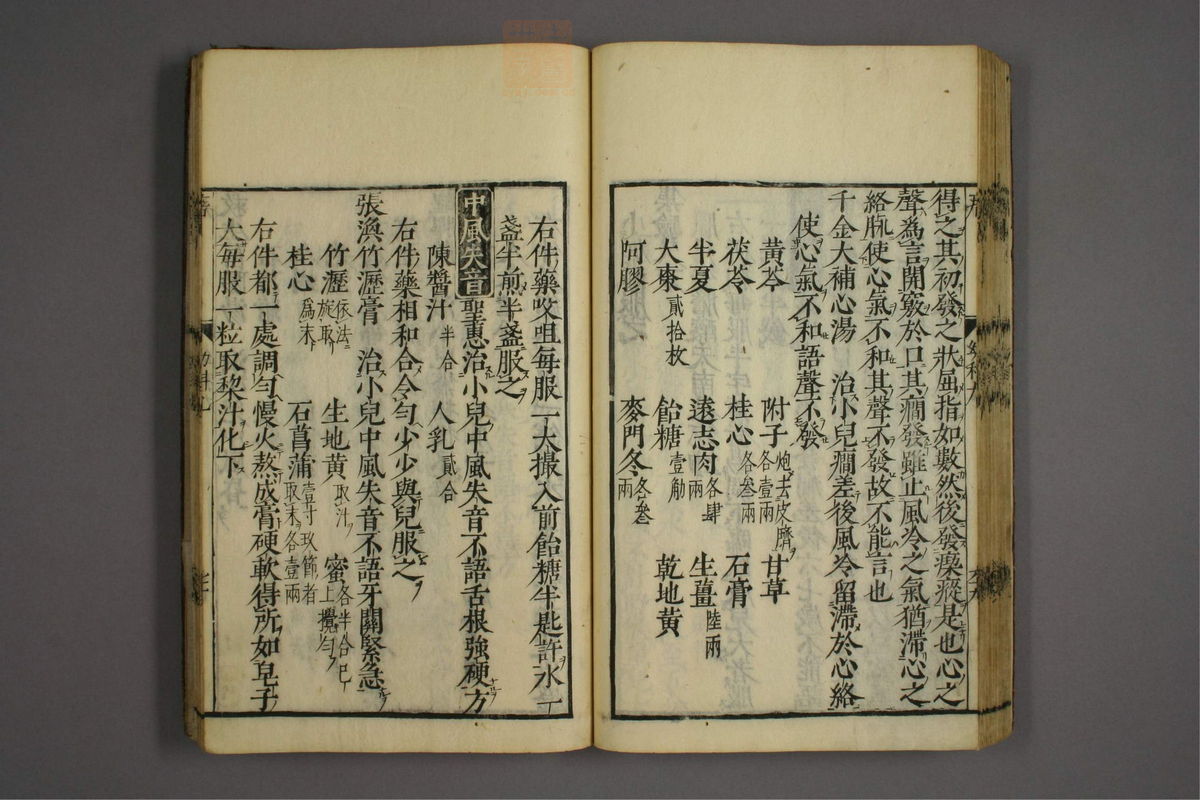 得之其初發之狀屈指如數然後發瘈瘲是也心之
聲爲言開竅於口其癎發雖止風冷之氣猶滯心之
絡脉使心氣不和其聲不發故不能言也
千金大補心湯 治小兒癎差後風冷留滯於心絡
使心氣不和語聲不發
黃芩 附子炮去皮臍各壹兩 甘草
茯苓 桂心各叁兩 石膏
半夏 遠志肉各肆兩 生薑陸兩
大棗貳拾枚 飴糖壹觔 乾地黃
阿膠 麥門冬各叁兩
右件藥㕮咀每服一大撮入前飴糖半匙許水一
盞半煎半盞服之
中風失音 聖惠治小兒中風失音不語舌根強硬方
陳醬汁半合 人乳貳合
右件藥相和合令勻少少與兒服之
張渙竹瀝膏 治小兒中風失音不語牙關緊急
竹瀝依法旋取 生地黃取汁 蜜各半合已上攪勻
桂心爲末 石菖蒲壹寸玖節者取末各壹兩
右件都一處調勻慢火熬成膏硬軟得所如皂子
大每服一粒取梨汁化下